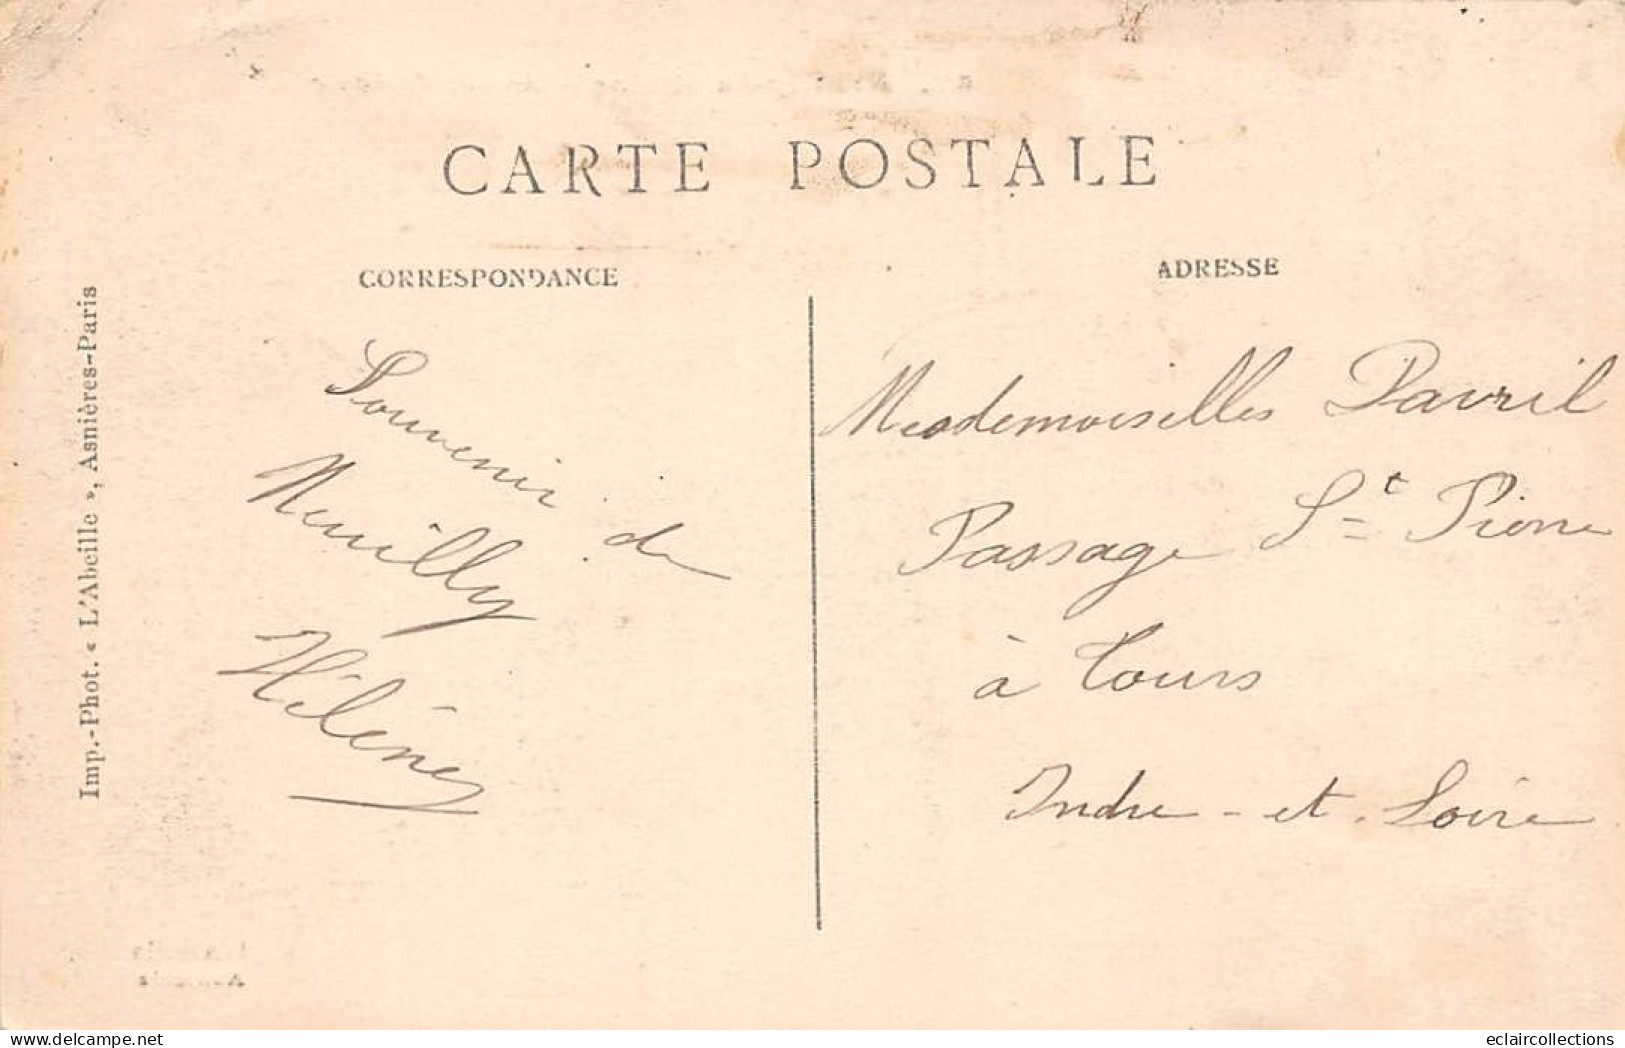 CARTE POSTALE
CORRESPONDANCE
Souvenir de
Neuilly
Hélène
ADRESSE
Mesdemoiselles Davril
Passage St Pierre
à Tours
Indre-et-Loire
Imp.-Phot. « L'Abeille », Asnières-Paris
delcampe.net
eclaircollections